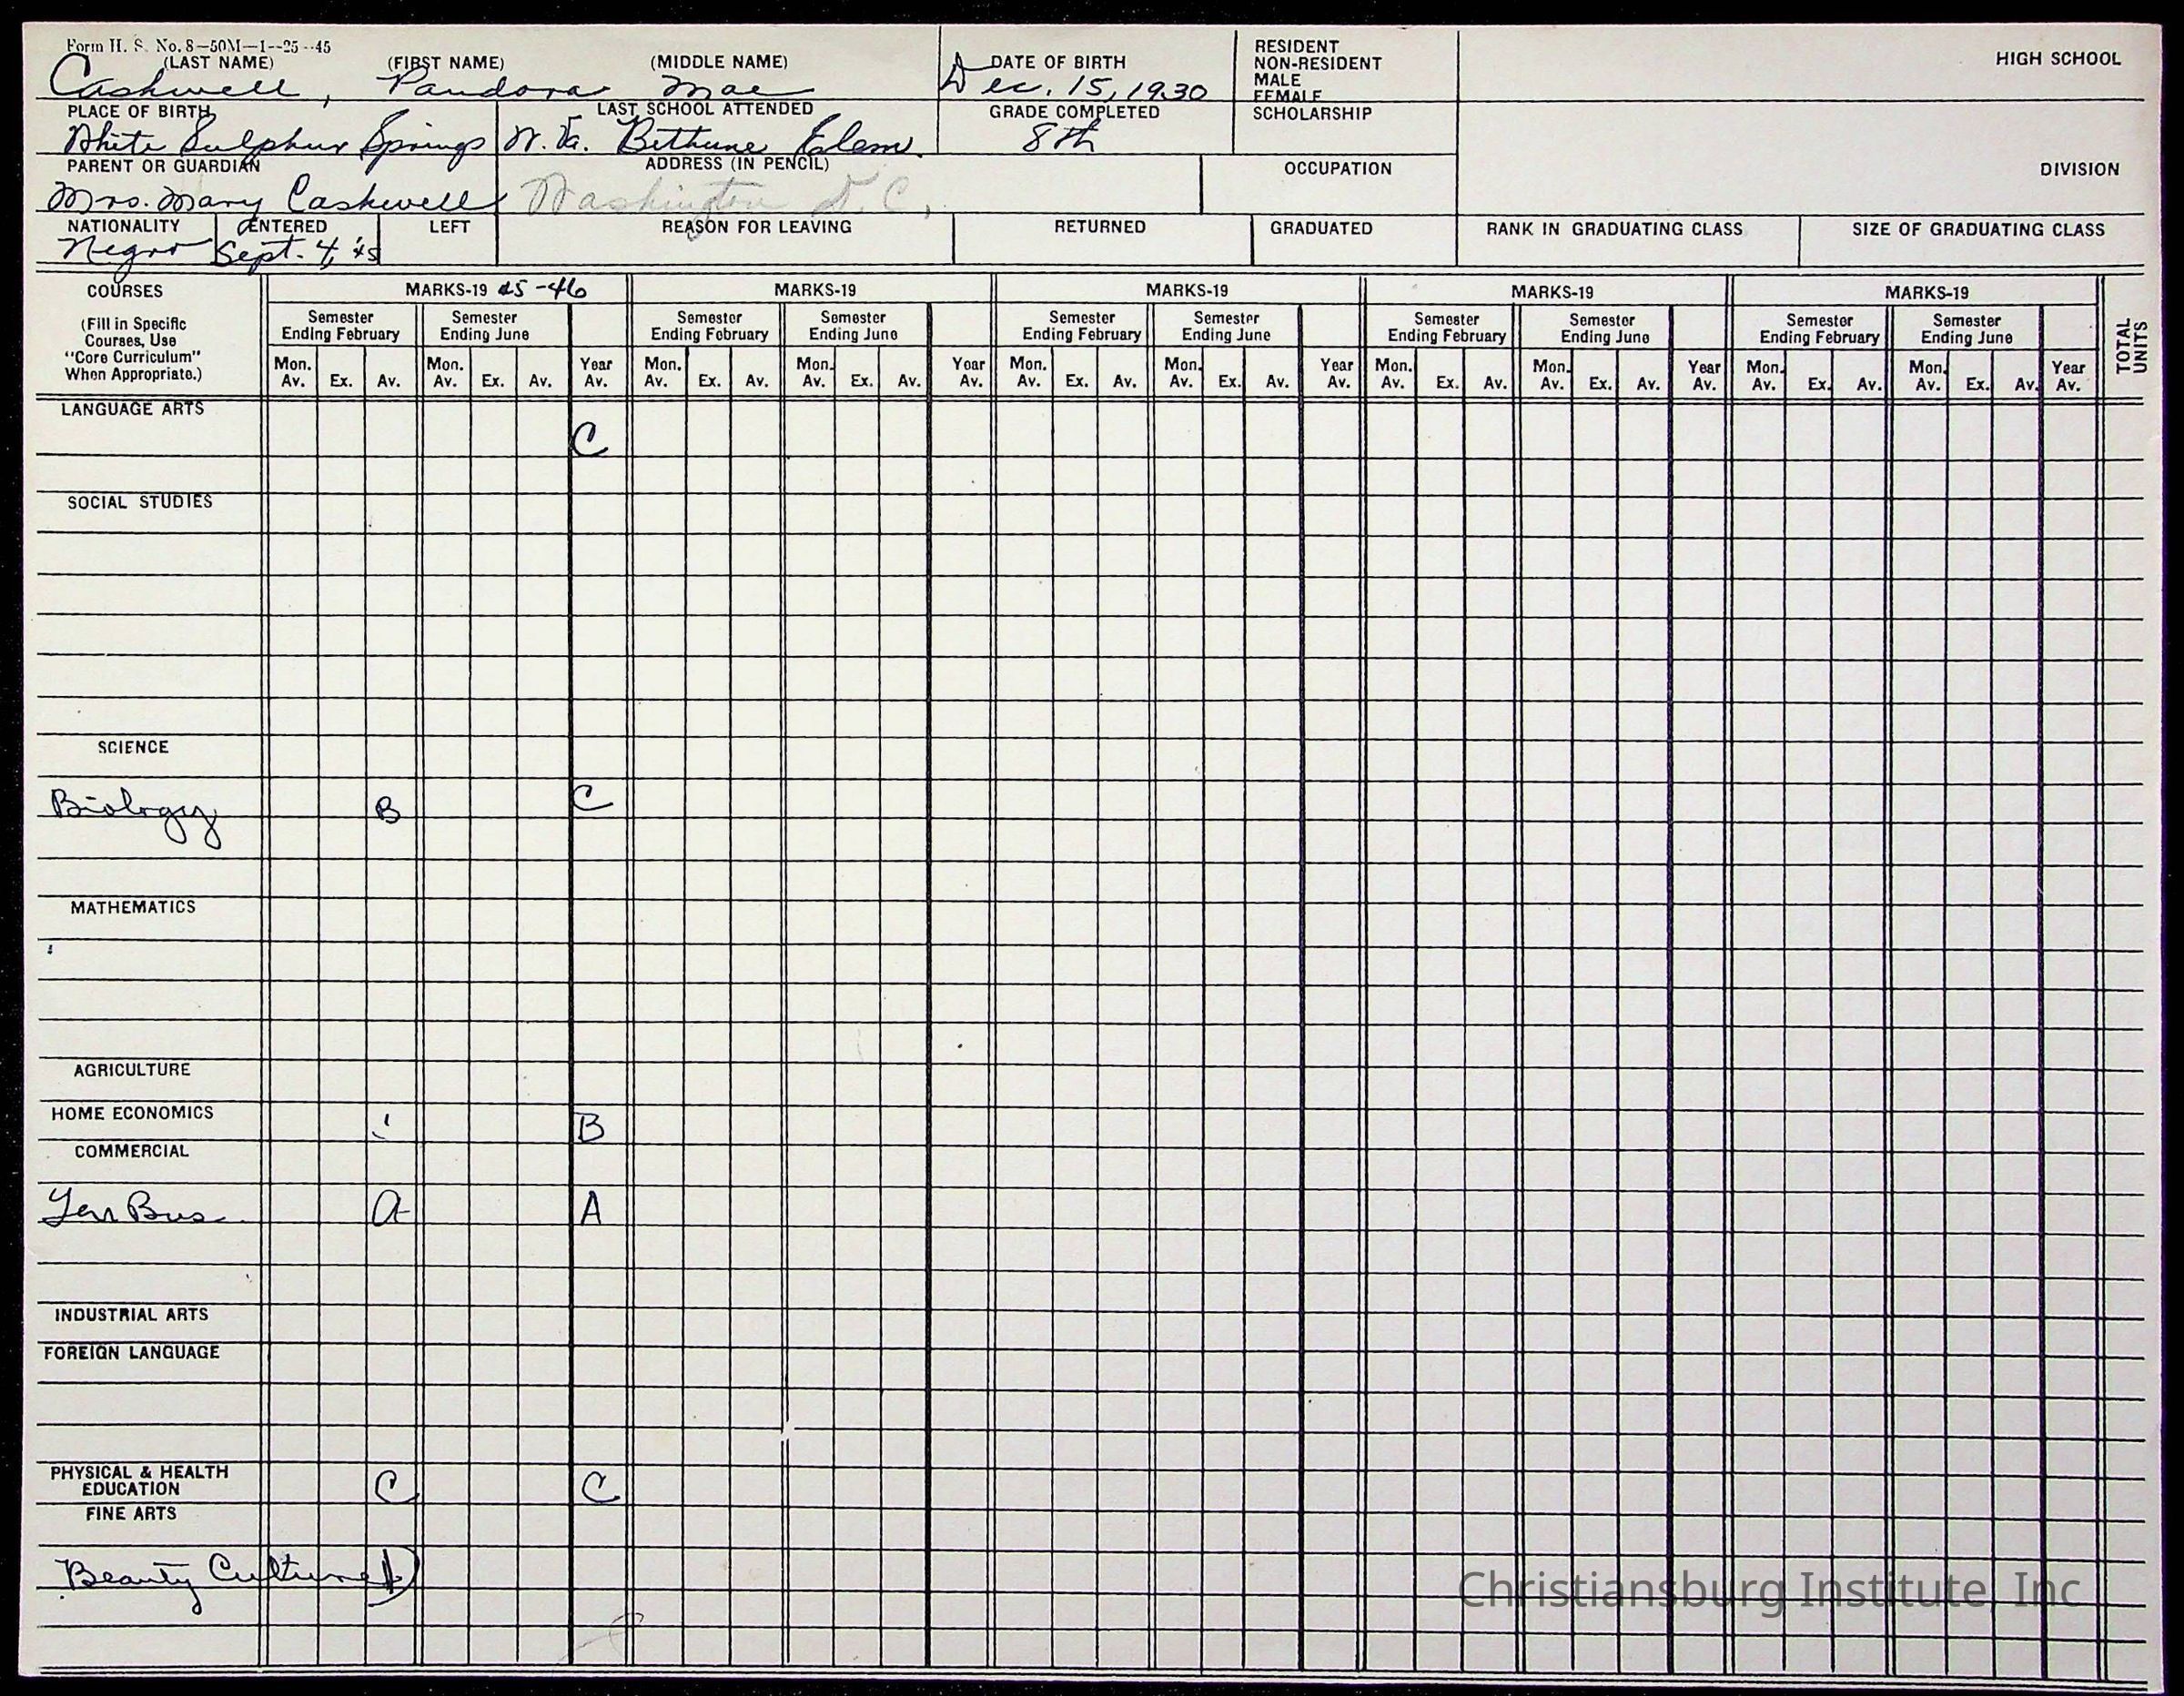 Form H. S. No. 8—50M—1--25--45
(LAST NAME) (FIRST NAME) (MIDDLE NAME) DATE OF BIRTH RESIDENT HIGH SCHOOL
NON-RESIDENT
MALE
FEMALE
Cashwell, Pandora Mae Dec. 15, 1930
PLACE OF BIRTH LAST SCHOOL ATTENDED GRADE COMPLETED SCHOLARSHIP
White Sulphur Springs W. Va. Bethune Elem. 8th
PARENT OR GUARDIAN ADDRESS (IN PENCIL) OCCUPATION DIVISION
Mrs. Mary Cashwell Washington D.C.
NATIONALITY ENTERED LEFT REASON FOR LEAVING RETURNED GRADUATED RANK IN GRADUATING CLASS SIZE OF GRADUATING CLASS
Negro Sept. 4, '45
COURSES MARKS-19 45-46 MARKS-19 MARKS-19 MARKS-19 MARKS-19 TOTAL UNITS
(Fill in Specific Semester Semester Semester Semester Semester Semester Semester Semester Semester Semester
Courses, Use Ending February Ending June Ending February Ending June Ending February Ending June Ending February Ending June Ending February Ending June
"Core Curriculum" Mon. Mon. Year Mon. Mon. Year Mon. Mon. Year Mon. Mon. Year Mon. Mon. Year
When Appropriate.) Av. Ex. Av. Av. Ex. Av. Av. Av. Ex. Av. Av. Ex. Av. Av. Av. Ex. Av. Av. Ex. Av. Av. Av. Ex. Av. Av. Ex. Av. Av. Av. Ex. Av. Av. Ex. Av. Av.
LANGUAGE ARTS
C
SOCIAL STUDIES
SCIENCE
Biology B C
MATHEMATICS
AGRICULTURE
HOME ECONOMICS B
COMMERCIAL
Bus. A A
INDUSTRIAL ARTS
FOREIGN LANGUAGE
PHYSICAL & HEALTH
EDUCATION C C
FINE ARTS
Beauty Culture D
Christiansburg Institute, Inc